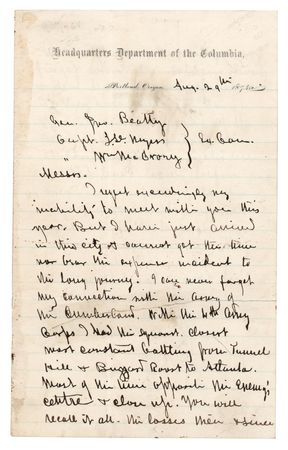 Headquarters Department of the Columbia,
Portland, Oregon Aug. 29th 187
Gen. Jno. Beatty
Capt. J. W. Myers } Ex. Com.
" Wm McCrory
Messrs.
I regret exceedingly my
inability to meet with you this
year. But I have just arrived
in this city & cannot get the time
nor bear the expense incident to
the long journey. I can never forget
my connection with the Army of
the Cumberland. With the 4th Army
Corps I had the squarest, closest
most constant battling from Tunnel
Hill & Buzzard Roost to Atlanta.
Most of the time opposite the Enemy's
centre & close up. You will
recall it all. The losses then & since